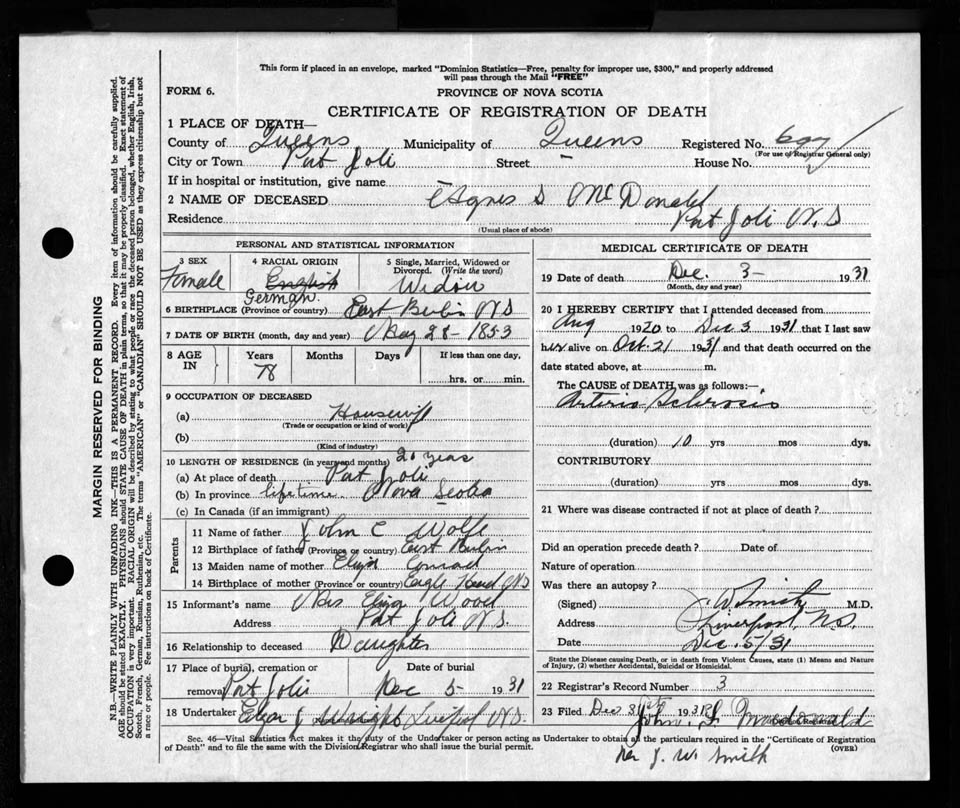 This form if placed in an envelope, marked "Dominion Statistics—Free, penalty for improper use, $300," and properly addressed
will pass through the Mail "FREE"
FORM 6.
PROVINCE OF NOVA SCOTIA
CERTIFICATE OF REGISTRATION OF DEATH
1 PLACE OF DEATH—
County of Queens Municipality of Queens Registered No.
(For use of Registrar General only)
City or Town Port Joli Street — House No.
If in hospital or institution, give name —
2 NAME OF DECEASED Agnes S McDonald
Residence Port Joli N.S
(Usual place of abode)
PERSONAL AND STATISTICAL INFORMATION
3 SEX Female
4 RACIAL ORIGIN English German.
5 Single, Married, Widowed or Divorced. (Write the word) Widow
6 BIRTHPLACE (Province or country) East Berlin N S
7 DATE OF BIRTH (month, day and year) May 28 - 1853
8 AGE IN Years 78 Months Days If less than one day, ......hrs. or ......min.
9 OCCUPATION OF DECEASED
(a) Housewife
(Trade or occupation or kind of work)
(b)
(Kind of industry)
10 LENGTH OF RESIDENCE (in years and months) 20 years
(a) At place of death Port Joli
(b) In province lifetime Nova Scotia
(c) In Canada (if an immigrant)
Parents
11 Name of father John C Wolfe
12 Birthplace of father (Province or country) East Berlin
13 Maiden name of mother Eliza Conrad
14 Birthplace of mother (Province or country) Eagle Head NS
15 Informant's name Mrs Eliza Wood
Address Port Joli N S.
16 Relationship to deceased Daughter
17 Place of burial, cremation or removal Port Joli Date of burial Dec 5 - 1931
18 Undertaker Wright N.S.
MEDICAL CERTIFICATE OF DEATH
19 Date of death Dec. 3 - 1931
(Month, day and year)
20 I HEREBY CERTIFY that I attended deceased from
Aug 1920 to Dec 3 1931 that I last saw
her alive on Oct. 21 1931 and that death occurred on the
date stated above, at m.
The CAUSE of DEATH was as follows:—
Arterio Sclerosis
(duration) 10 yrs mos dys.
CONTRIBUTORY
(duration) yrs mos dys.
21 Where was disease contracted if not at place of death?
Did an operation precede death? Date of
Nature of operation
Was there an autopsy?
(Signed) J W Smith M.D.
Address Liverpool, N.S.
Date Dec. 5/31
State the Disease causing Death, or in death from Violent Causes, state (1) Means and
Nature of Injury, (2) whether Accidental, Suicidal or Homicidal.
22 Registrar's Record Number 3
23 Filed Dec 1931 John L Macdonald
Sec. 46—Vital Statistics Act makes it the duty of the Undertaker or person acting as Undertaker to obtain all the particulars required in the "Certificate of Registration
of Death" and to file the same with the Division Registrar who shall issue the burial permit.
(OVER)
Per J. W. Smith
MARGIN RESERVED FOR BINDING
N.B.—WRITE PLAINLY WITH UNFADING INK—THIS IS A PERMANENT RECORD. Every item of information should be carefully supplied.
AGE should be stated EXACTLY. PHYSICIANS should STATE CAUSE OF DEATH in plain terms, so that it may be properly classified. Exact statement of
OCCUPATION is very important. RACIAL ORIGIN will be described by stating to what people or race the deceased person belonged, whether English, Irish,
Scotch, French, German, Russian, Ruthenian, etc. The terms "AMERICAN" or "CANADIAN" SHOULD NOT BE USED as they express citizenship but not
a race or people. See instructions on back of Certificate.